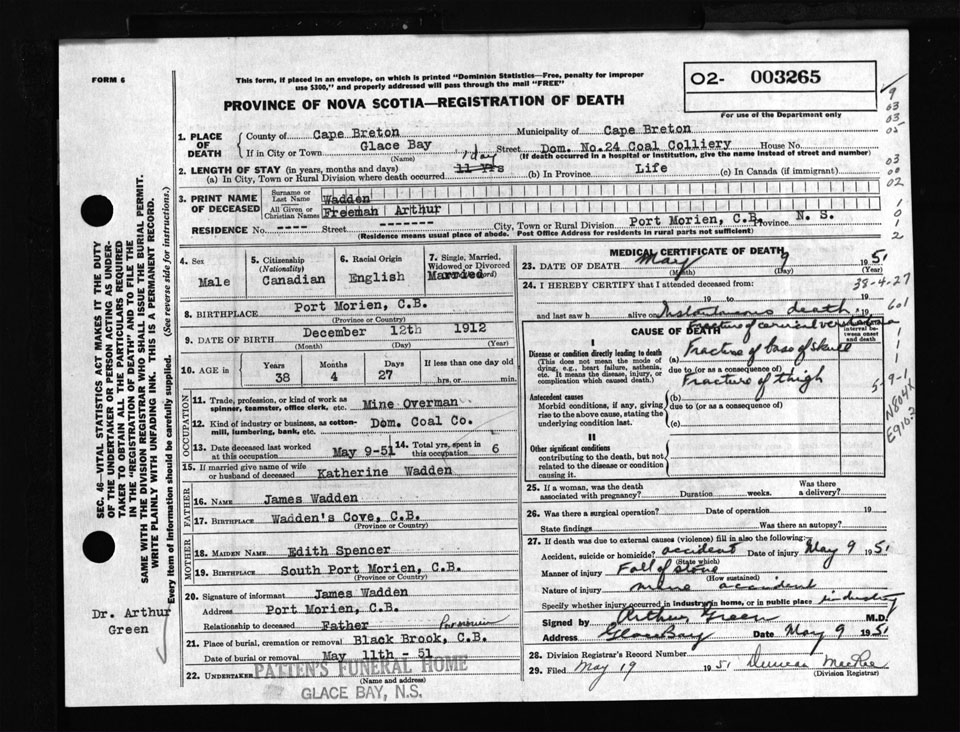 FORM 6
This form, if placed in an envelope, on which is printed "Dominion Statistics—Free, penalty for improper
use $300," and properly addressed will pass through the mail "FREE"
PROVINCE OF NOVA SCOTIA—REGISTRATION OF DEATH
O2- 003265
For use of the Department only
9
03
03
02
03
00
02
1
0
1
2
1. PLACE OF DEATH
County of Cape Breton Municipality of Cape Breton
If in City or Town Glace Bay Street Dom. No.24 Coal Colliery House No.
(Name) (If death occurred in a hospital or institution, give the name instead of street and number)
2. LENGTH OF STAY (in years, months and days)
(a) In City, Town or Rural Division where death occurred 11 Yrs 1 day (b) In Province Life (c) In Canada (if immigrant)
3. PRINT NAME OF DECEASED
Surname or Last Name Wadden
All Given or Christian Names Freeman Arthur
RESIDENCE No. ---- Street ------- City, Town or Rural Division Port Morien, C.B. Province N. S.
(Residence means usual place of abode. Post Office Address for residents in rural parts not sufficient)
4. Sex
Male
5. Citizenship (Nationality)
Canadian
6. Racial Origin
English
7. Single, Married, Widowed or Divorced (Word)
Married
8. BIRTHPLACE Port Morien, C.B.
(Province or Country)
9. DATE OF BIRTH December 12th 1912
(Month) (Day) (Year)
10. AGE in
Years 38
Months 4
Days 27
If less than one day
hrs. or min.
OCCUPATION
11. Trade, profession, or kind of work as
spinner, teamster, office clerk, etc. Mine Overman
12. Kind of industry or business, as cotton-
mill, lumbering, bank, etc. Dom. Coal Co.
13. Date deceased last worked
at this occupation May 9-51
14. Total yrs. spent in
this occupation 6
15. If married give name of wife
or husband of deceased Katherine Wadden
FATHER
16. NAME James Wadden
17. BIRTHPLACE Wadden's Cove, C.B.
(Province or Country)
MOTHER
18. MAIDEN NAME Edith Spencer
19. BIRTHPLACE South Port Morien, C.B.
(Province or Country)
20. Signature of informant James Wadden
Address Port Morien, C.B.
Relationship to deceased Father
21. Place of burial, cremation or removal Black Brook, C.B.
Date of burial or removal May 11th - 51
22. UNDERTAKER PATTEN'S FUNERAL HOME
GLACE BAY, N.S.
MEDICAL CERTIFICATE OF DEATH
23. DATE OF DEATH May 9 1951
(Month) (Day) (Year)
38-4-27
24. I HEREBY CERTIFY that I attended deceased from:
19 to 19
and last saw h alive on Instantaneous death, 19
601
CAUSE OF DEATH
Interval between onset and death
fracture of cervical vertebra
I
Disease or condition directly leading to death
(This does not mean the mode of
dying, e.g., heart failure, asthenia,
etc. It means the disease, injury, or
complication which caused death.)
(a) Fracture of base of skull
due to (or as a consequence of)
Fracture of thigh
Antecedent causes
Morbid conditions, if any, giving
rise to the above cause, stating the
underlying condition last.
(b)
due to (or as a consequence of)
(c)
II
Other significant conditions
contributing to the death, but not
related to the disease or condition
causing it.
25. If a woman, was the death
associated with pregnancy? Duration weeks. Was there
a delivery?
26. Was there a surgical operation? Date of operation 19
State findings Was there an autopsy?
27. If death was due to external causes (violence) fill in also the following:
Accident, suicide or homicide? accident Date of injury May 9 1951
(State which)
Manner of injury Fall of stone
(How sustained)
Nature of injury mine accident
Specify whether injury occurred in industry, in home, or in public place industry
Signed by Arthur Green M.D.
Address Glace Bay Date May 9 1951
28. Division Registrar's Record Number
29. Filed May 19 1951
(Division Registrar)
SEC. 46—VITAL STATISTICS ACT MAKES IT THE DUTY
OF THE UNDERTAKER OR PERSON ACTING AS UNDER-
TAKER TO OBTAIN ALL THE PARTICULARS REQUIRED
IN THE "REGISTRATION OF DEATH" AND TO FILE THE
SAME WITH THE DIVISION REGISTRAR WHO SHALL ISSUE THE BURIAL PERMIT.
WRITE PLAINLY WITH UNFADING INK. THIS IS A PERMANENT RECORD.
Every item of information should be carefully supplied. (See reverse side for instructions.)
Dr. Arthur
Green